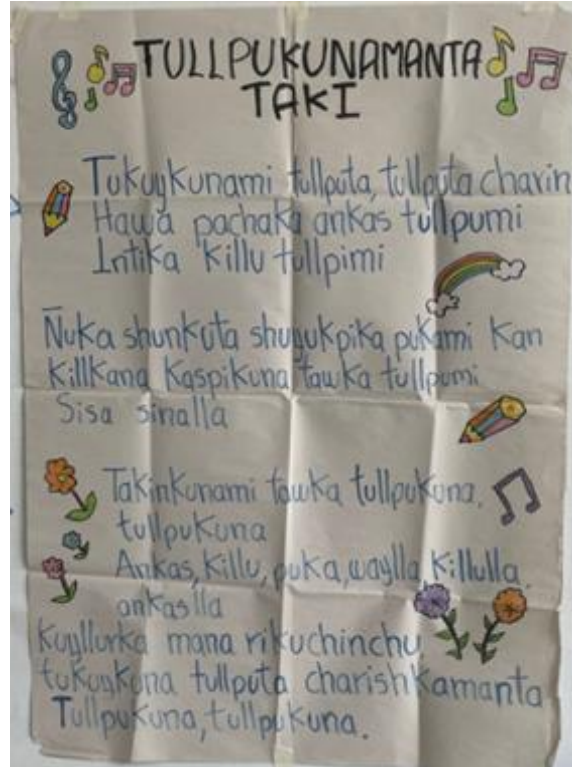 TULLPUKUNAMANTA
TAKI
Tukuykunami tullputa, tullputa charin
Hawa pachaka ankas tullpumi
Intika Killu tullpimi
Ñuka shunkuta shuyukpika pukami Kan
Killkana Kaspikuna tawka tullpumi
Sisa sinalla
Takinkunami tawka tullpukuna,
tullpukuna
Ankas, Killu, puka, waylla, Killulla,
ankaslla
Kuyllurka mana rikuchinchu
tukuykuna tullputa charishkamanta
Tullpukuna, tullpukuna.